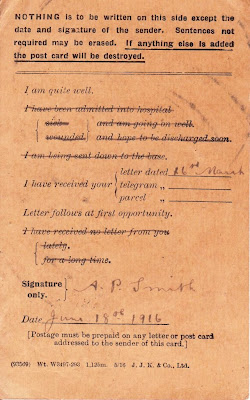 NOTHING is to be written on this side except the
date and signature of the sender. Sentences not
required may be erased. If anything else is added
the post card will be destroyed.
I am quite well.
I have been admitted into hospital
sick and am going on well.
wounded and hope to be discharged soon.
I am being sent down to the base.
letter dated 26th March
I have received your telegram „
parcel „
Letter follows at first opportunity.
I have received no letter from you
lately.
for a long time.
Signature only. A. P. Smith
Date June 18th 1916
[Postage must be prepaid on any letter or post card
addressed to the sender of this card.]
(93509) Wt. W3497-293 1,125m. 5/16 J. J. K. & Co., Ltd.